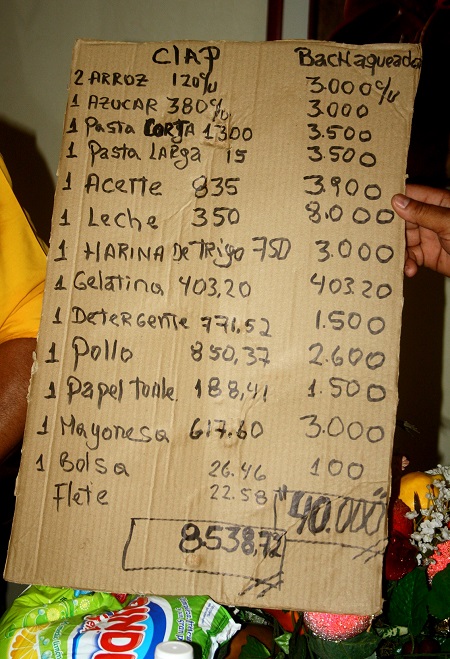 CLAP Bachaqueado
2 ARROZ 120%u 3.000%u
1 AZUCAR 380%u 3.000
1 Pasta CORTA 1300 3.500
1 Pasta LARga 15 3.500
1 Aceite 835 3.900
1 Leche 350 8.000
1 HARINA De Trigo 750 3.000
1 Gelatina 403,20 403.20
1 DeTeRgente 771,52 1.500
1 Pollo 850,37 2.600
1 Papel 188,41 1.500
1 Mayonesa 617.60 3.000
1 Bolsa 26.46 100
Flete 22.58 "40.000"
8.538,72